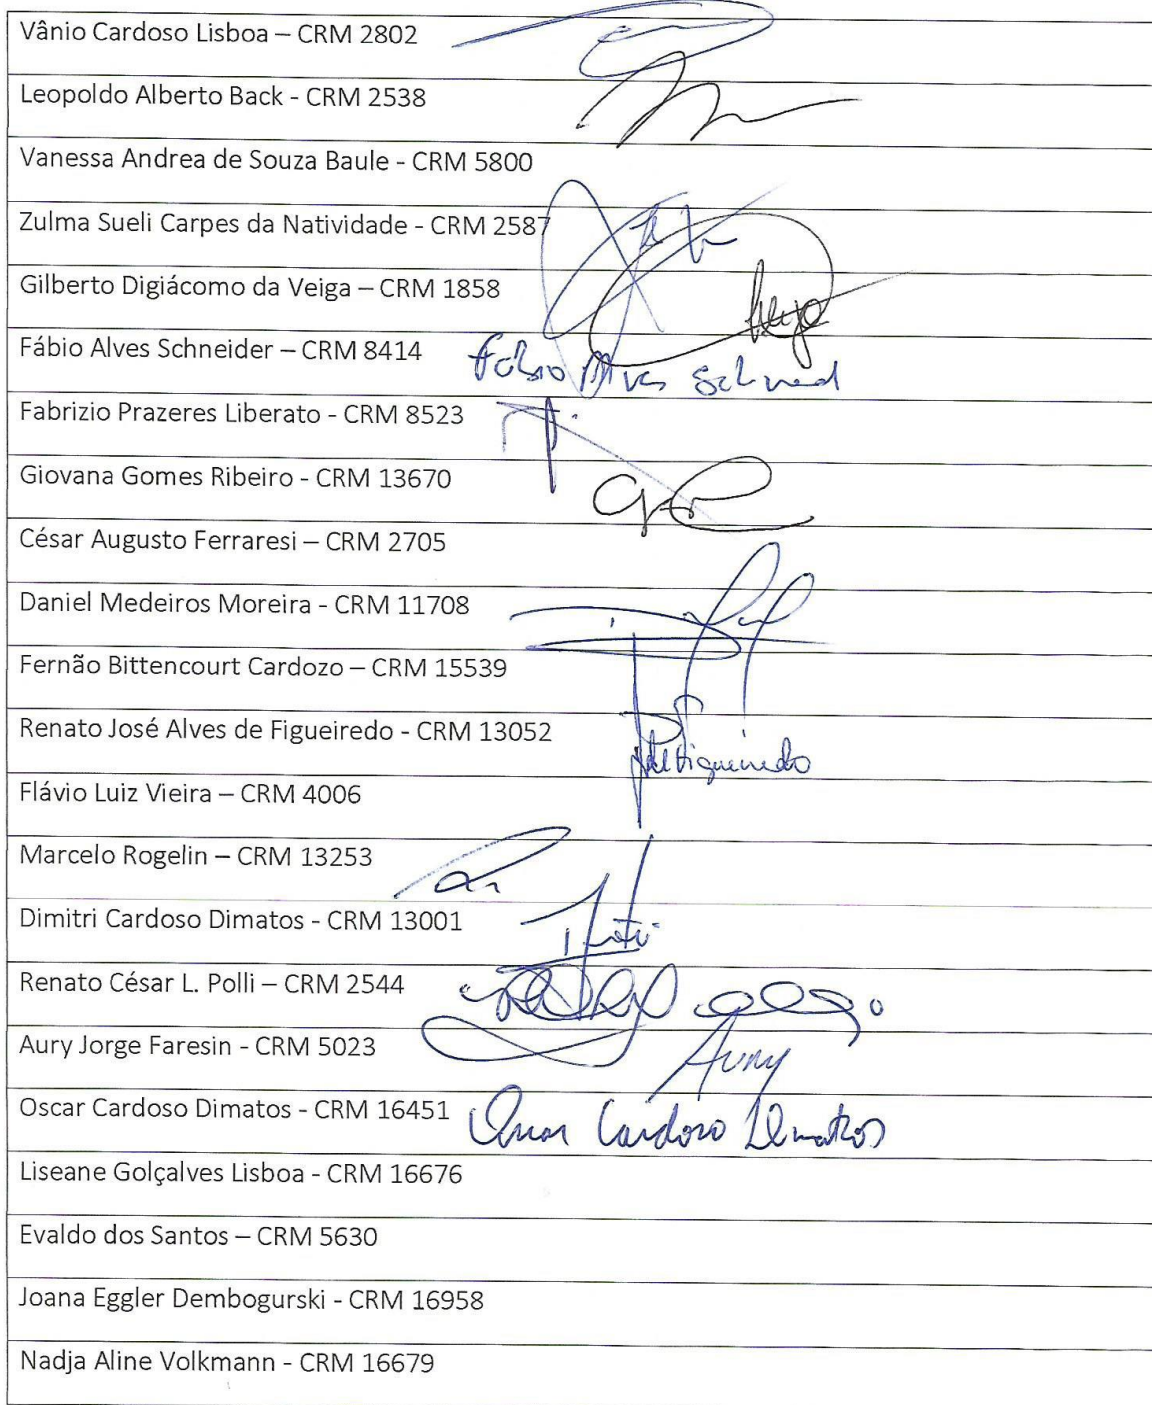 Vânio Cardoso Lisboa – CRM 2802
Leopoldo Alberto Back - CRM 2538
Vanessa Andrea de Souza Baule - CRM 5800
Zulma Sueli Carpes da Natividade - CRM 2587
Gilberto Digiácomo da Veiga – CRM 1858
Fábio Alves Schneider – CRM 8414 Fabio Alves Schneid
Fabrizio Prazeres Liberato - CRM 8523
Giovana Gomes Ribeiro - CRM 13670
César Augusto Ferraresi – CRM 2705
Daniel Medeiros Moreira - CRM 11708
Fernão Bittencourt Cardozo – CRM 15539
Renato José Alves de Figueiredo - CRM 13052
Flávio Luiz Vieira – CRM 4006
Marcelo Rogelin – CRM 13253
Dimitri Cardoso Dimatos - CRM 13001
Renato César L. Polli – CRM 2544
Aury Jorge Faresin - CRM 5023 Aury
Oscar Cardoso Dimatos - CRM 16451 Oscar Cardoso Dimatos
Liseane Golçalves Lisboa - CRM 16676
Evaldo dos Santos – CRM 5630
Joana Eggler Dembogurski - CRM 16958
Nadja Aline Volkmann - CRM 16679